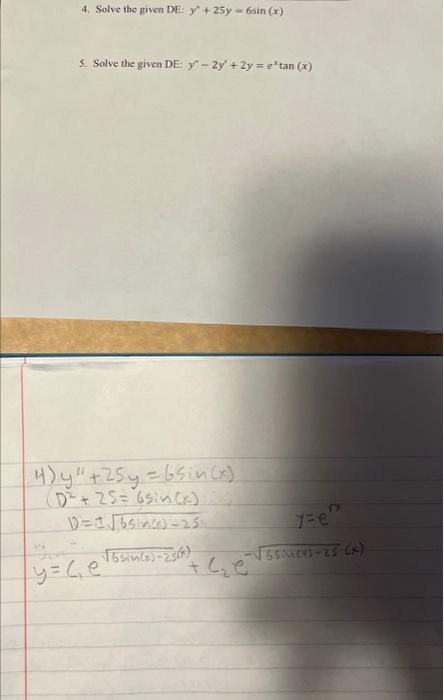 4. Solve the given DE: y" + 25y = 6sin (x)
5. Solve the given DE: y" − 2y' + 2y = eˣtan (x)
4) y" + 25y = 6sin(x)
(D² + 25 = 6sin(x)
D = ±√(6sin(x) − 25)
y = e^(rx)
y = C₁e^(√(6sin(x)−25)(x)) + C₂e^(−√(6sin(x)−25)(x))